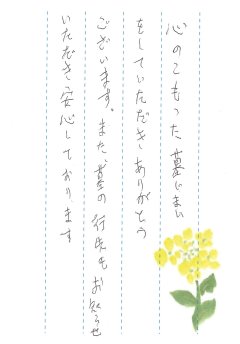 心のこもった墓じまい
をしていただきありがとう
ございます。また、墓の行先もお知らせ
いただき安心しております